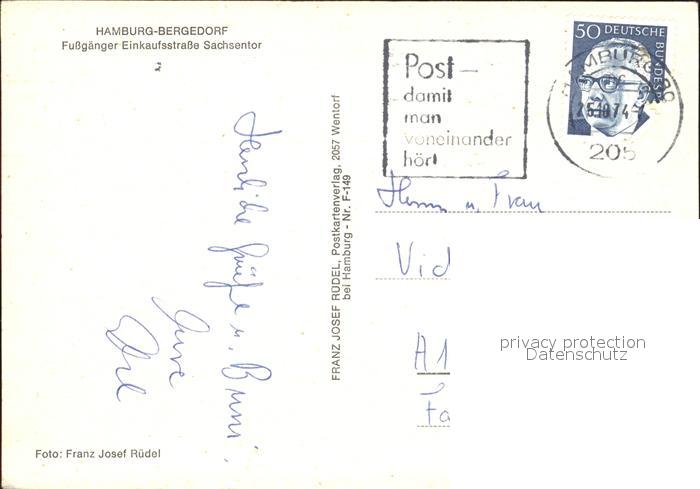 HAMBURG-BERGEDORF
Fußgänger Einkaufsstraße Sachsentor
Post –
damit
man
voneinander
hört
50 DEUTSCHE BUNDESP
HAMBURG 80
205
Herrn u. Frau
Vid
A1
Fa
privacy protection
Datenschutz
Herzliche Grüße u.
Eure
FRANZ JOSEF RÜDEL, Postkartenverlag, 2057 Wentorf
bei Hamburg - Nr. F-149
Foto: Franz Josef Rüdel